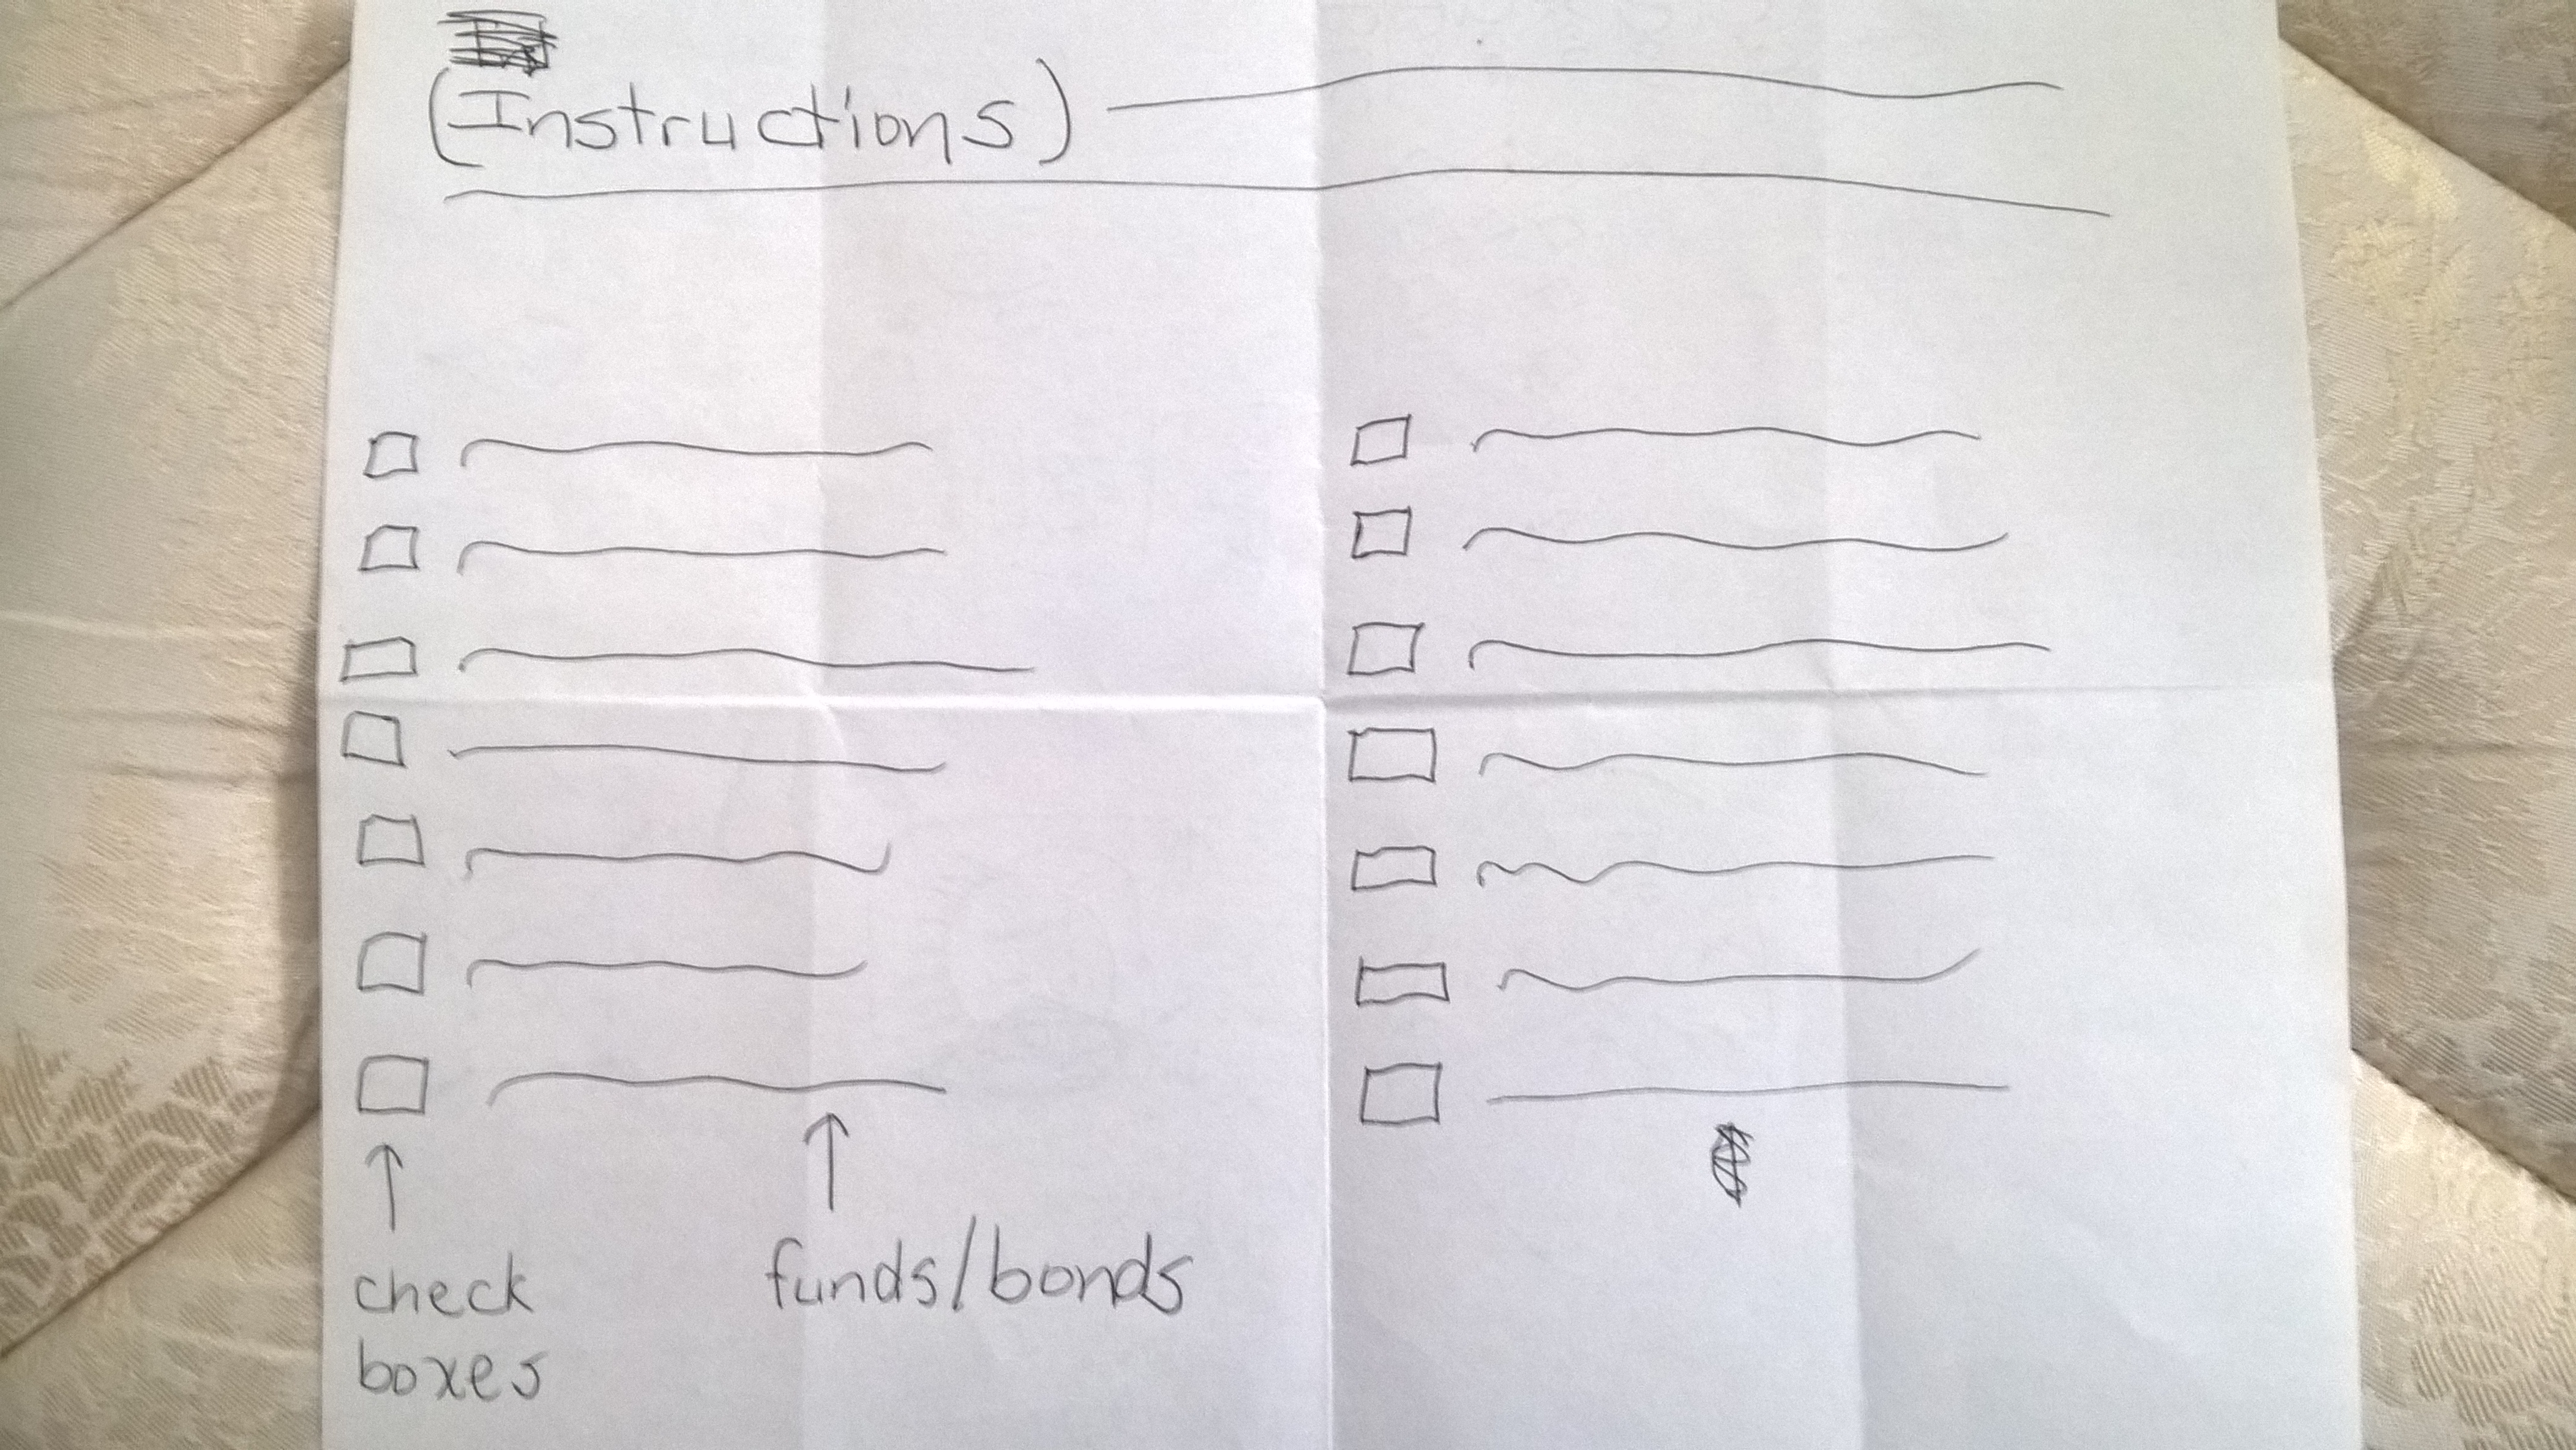 (Instructions)
check
boxes
funds/bonds